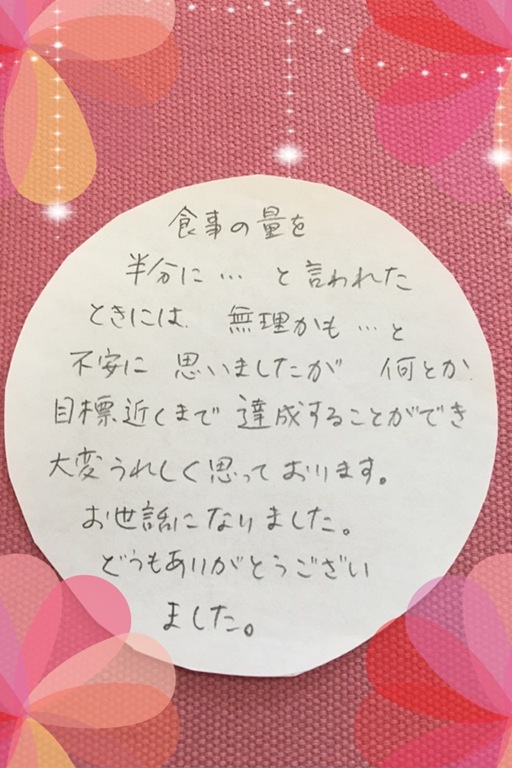 食事の量を
半分に … と言われた
ときには、無理かも … と
不安に 思いましたが 何とか
目標近くまで 達成することができ
大変うれしく思っております。
お世話になりました。
どうもありがとうござい
ました。